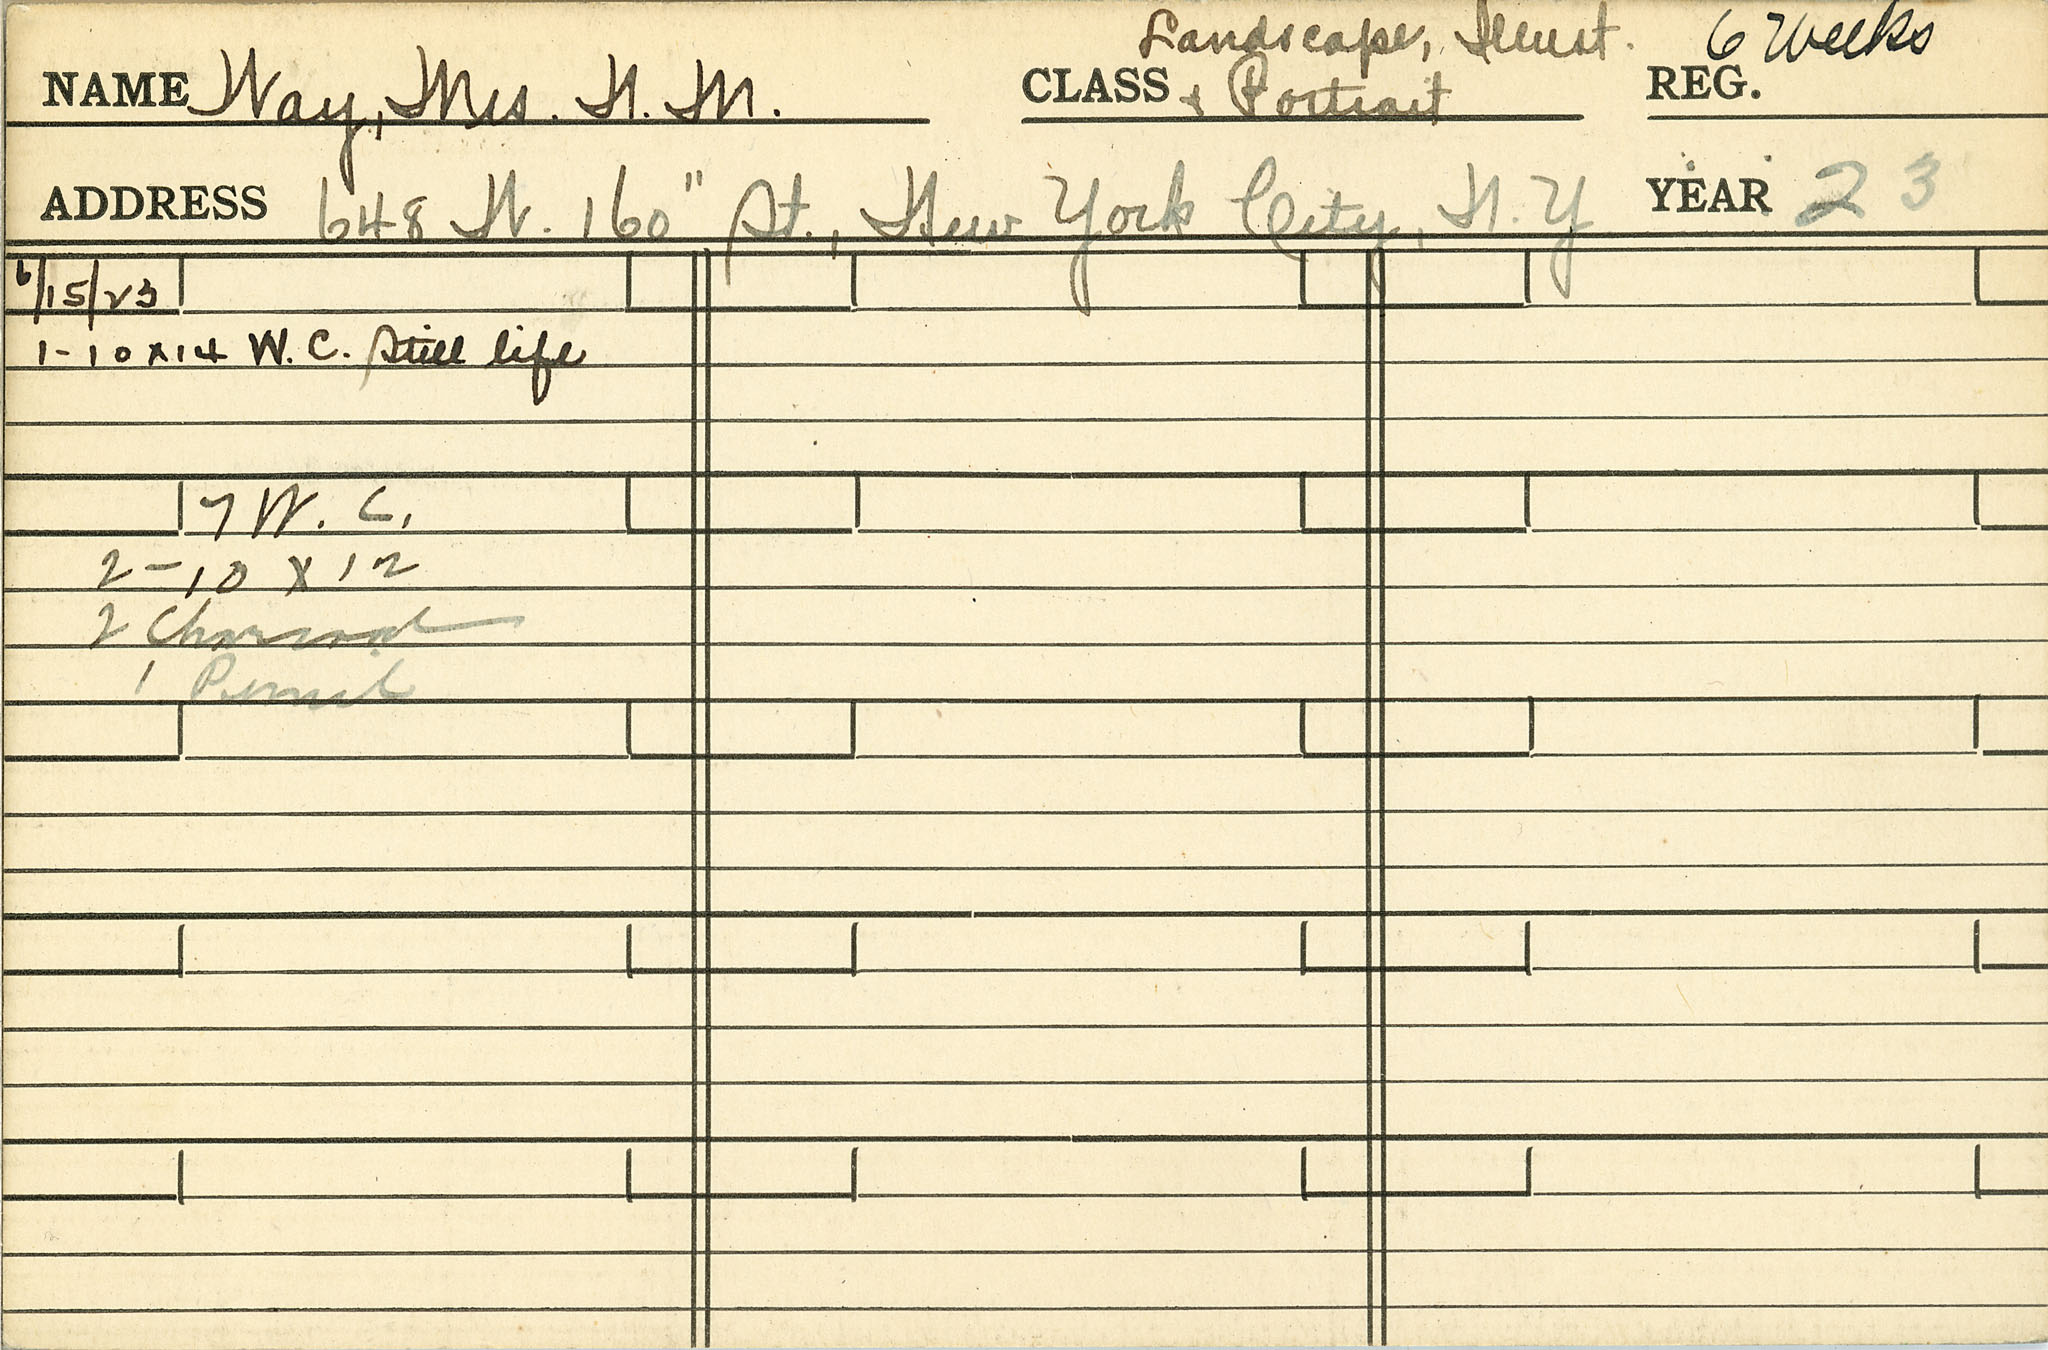 NAME Way, Mrs. N. M. CLASS Landscape, Illust. & Portrait REG. 6 Weeks
ADDRESS 648 W. 160" St., New York City, N.Y YEAR 23
6/15/23
1-10x14 W.C. Still life
7 W.C.
2-10 x 12
2 Charcoal
1 Pencil